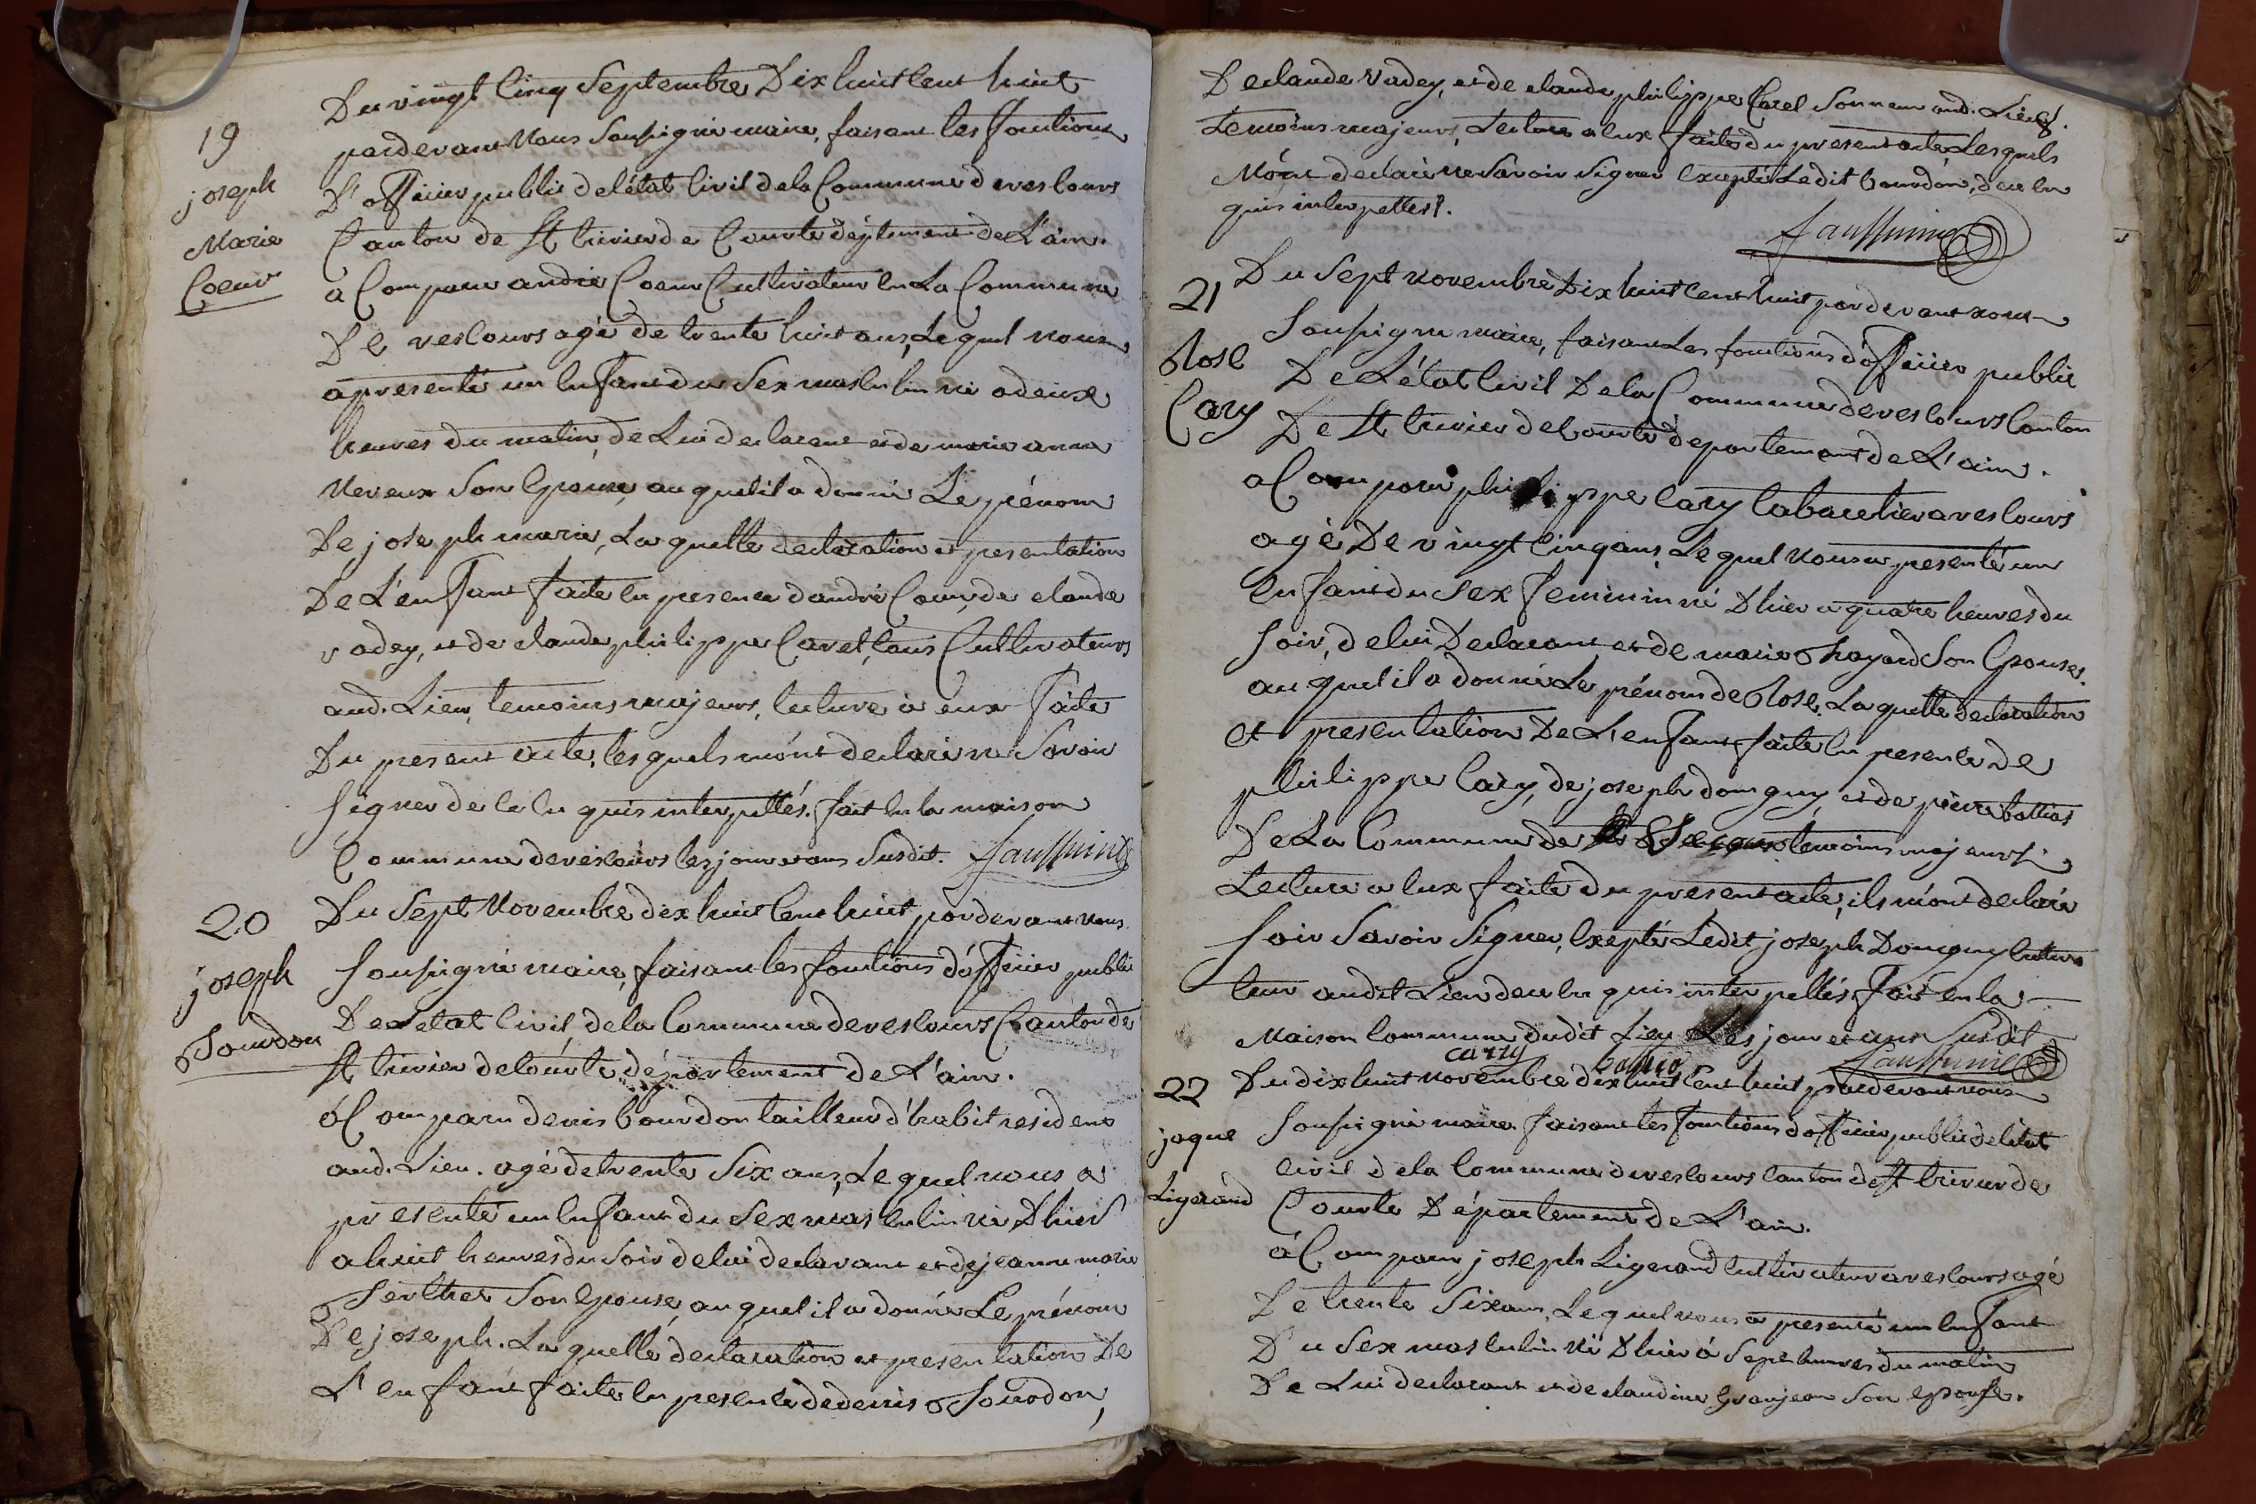 19
joseph
Marie
Coeur
Du vingt cinq Septembre Dix huit cent huit
pardevant Nous Soussigné maire, faisant les fonctions
D'officier public de l'état Civil de la Commune de vescours
Canton de St trivier de Courte déptement de L'ain.
a Comparu andré Coeur Cultivateur en La Commune
De vescours agé de trente huit ans, Lequel nous
a presenté un enfant du Sex masculin né a deux
heures du matin, de Lui declarant et de marie anne
Son Epouse, au quel il a donné Le prénom
De joseph marie, La quelle declaration et presentation
De L'enfant faite en presence d'andré Coeur, de claude
vadey, et de claude philippe Carel, tous Cultivateurs
aud. Lieu, temoins majeurs, lecture à eux faite
Du present acte, les quels m'ont declaré ne Savoir
signer de ce en quis interpellés. fait en la maison
Commune de vescours les jour et ans Susdit.
20
joseph
Bourdon
Du Sept Novembre dix huit cent huit, pardevant nous
Soussigné maire, faisant les fonctions d'officier public
De L'etat Civil, de la Commune de vescours Canton de
St trivier de Courte département de L'ain.
a Comparu denis bourdon tailleur d'habit resident
aud. Lieu. agé de trente Six ans, Le quel nous a
presenté un enfant du Sex masculin né D'hier
a huit heures du Soir de lui declarant et de jeanne marie
Son Epouse, au quel il a donné Le prénom
De joseph. La quelle declaration et presentation De
L'enfant faite en presence de denis Bourdon,
De claude Vadey, et de claude philippe Carel Sonneur aud. Lieu.
temoins majeurs, Lecture a eux faite du present acte Lesquels
M'ont declaré ne Savoir Signer Excepté Ledit bourdon, de ce en
quis interpellés.
21
Rose
Cazy
Du Sept novembre Dix huit cent huit pardevant nous
Soussigné maire, faisant Les fonctions d'officier public
De L'état Civil De la Commune de vescours Canton
De St trivier de Courte departement de L'ain.
a Comparu philippe Cazy tabacetier a vescours
agé De vingt Cinq ans, Le quel nous a presenté un
enfant du Sex feminin né D'hier a quatre heures du
Soir, de lui Declarant et de marie Son Epouse.
au quel il a donné Le prénom de Rose. La quelle declaration
et presentation De L'enfant faite en presence De
philippe Cazy, de joseph domguy et de pierre
De La Commune de temoins majeurs
Lecture a eux faite du present acte, ils m'ont declaré
Soir Savoir Signer, Excepté Ledit joseph Domguy Cultiva
teur audit Lieu de ce en quis interpellés fait en la
Maison Commune dudit Lieu Les jour et ans Susdit
cazzy
22
jaque
Ligerand
Du dix huit novembre dix huit cent huit pardevant nous
Soussigné maire faisant les fonctions d'officier public de l'état
civil de la Commune de vescours canton de St trivier de
Courte Département de L'ain.
a Comparu joseph Ligerand cultivateur a vescours agé
De trente Six ans, Lequel nous a presenté un enfant
Du Sex masculin né D'hier á Sept heures du matin
De Lui declarant et de claudine Granjean Son epouse.